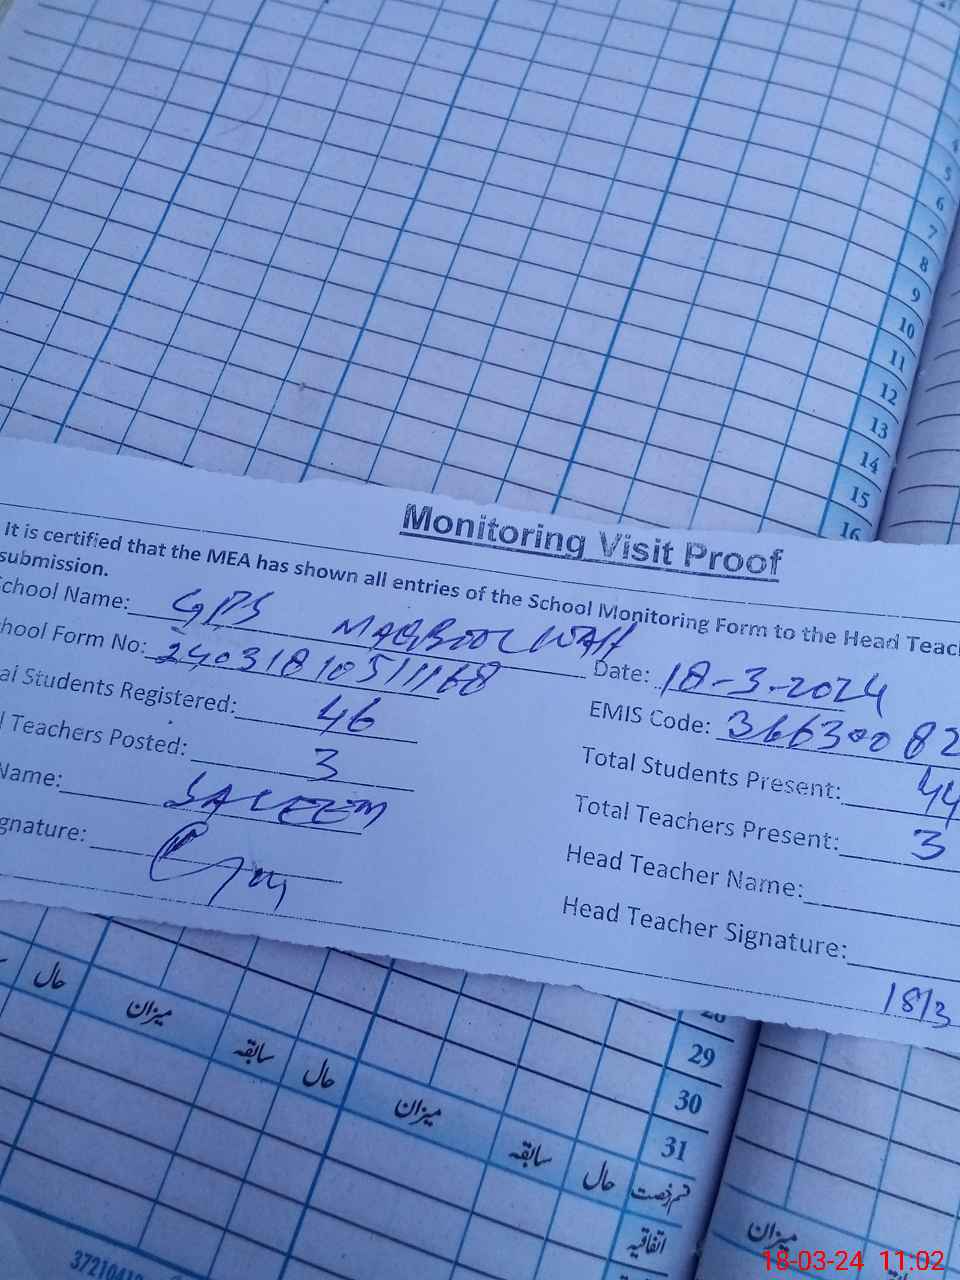 4
5
6
7
8
9
10
11
12
13
14
15
16
Monitoring Visit Proof
It is certified that the MEA has shown all entries of the School Monitoring Form to the Head Teac
submission.
School Name: GPS MAQBOOL WAH
Date: 18-3-2024
hool Form No: 24031810511168
EMIS Code: 36630082
al Students Registered: 46
Total Students Present: 44
l Teachers Posted: 3
Total Teachers Present: 3
Name: SALEEM
Head Teacher Name:
gnature:
Head Teacher Signature:
18/3
29
30
31
حال میزان سابقہ حال میزان سابقہ حال قسم رخصت
اتفاقیہ
میزان
18-03-24 11:02